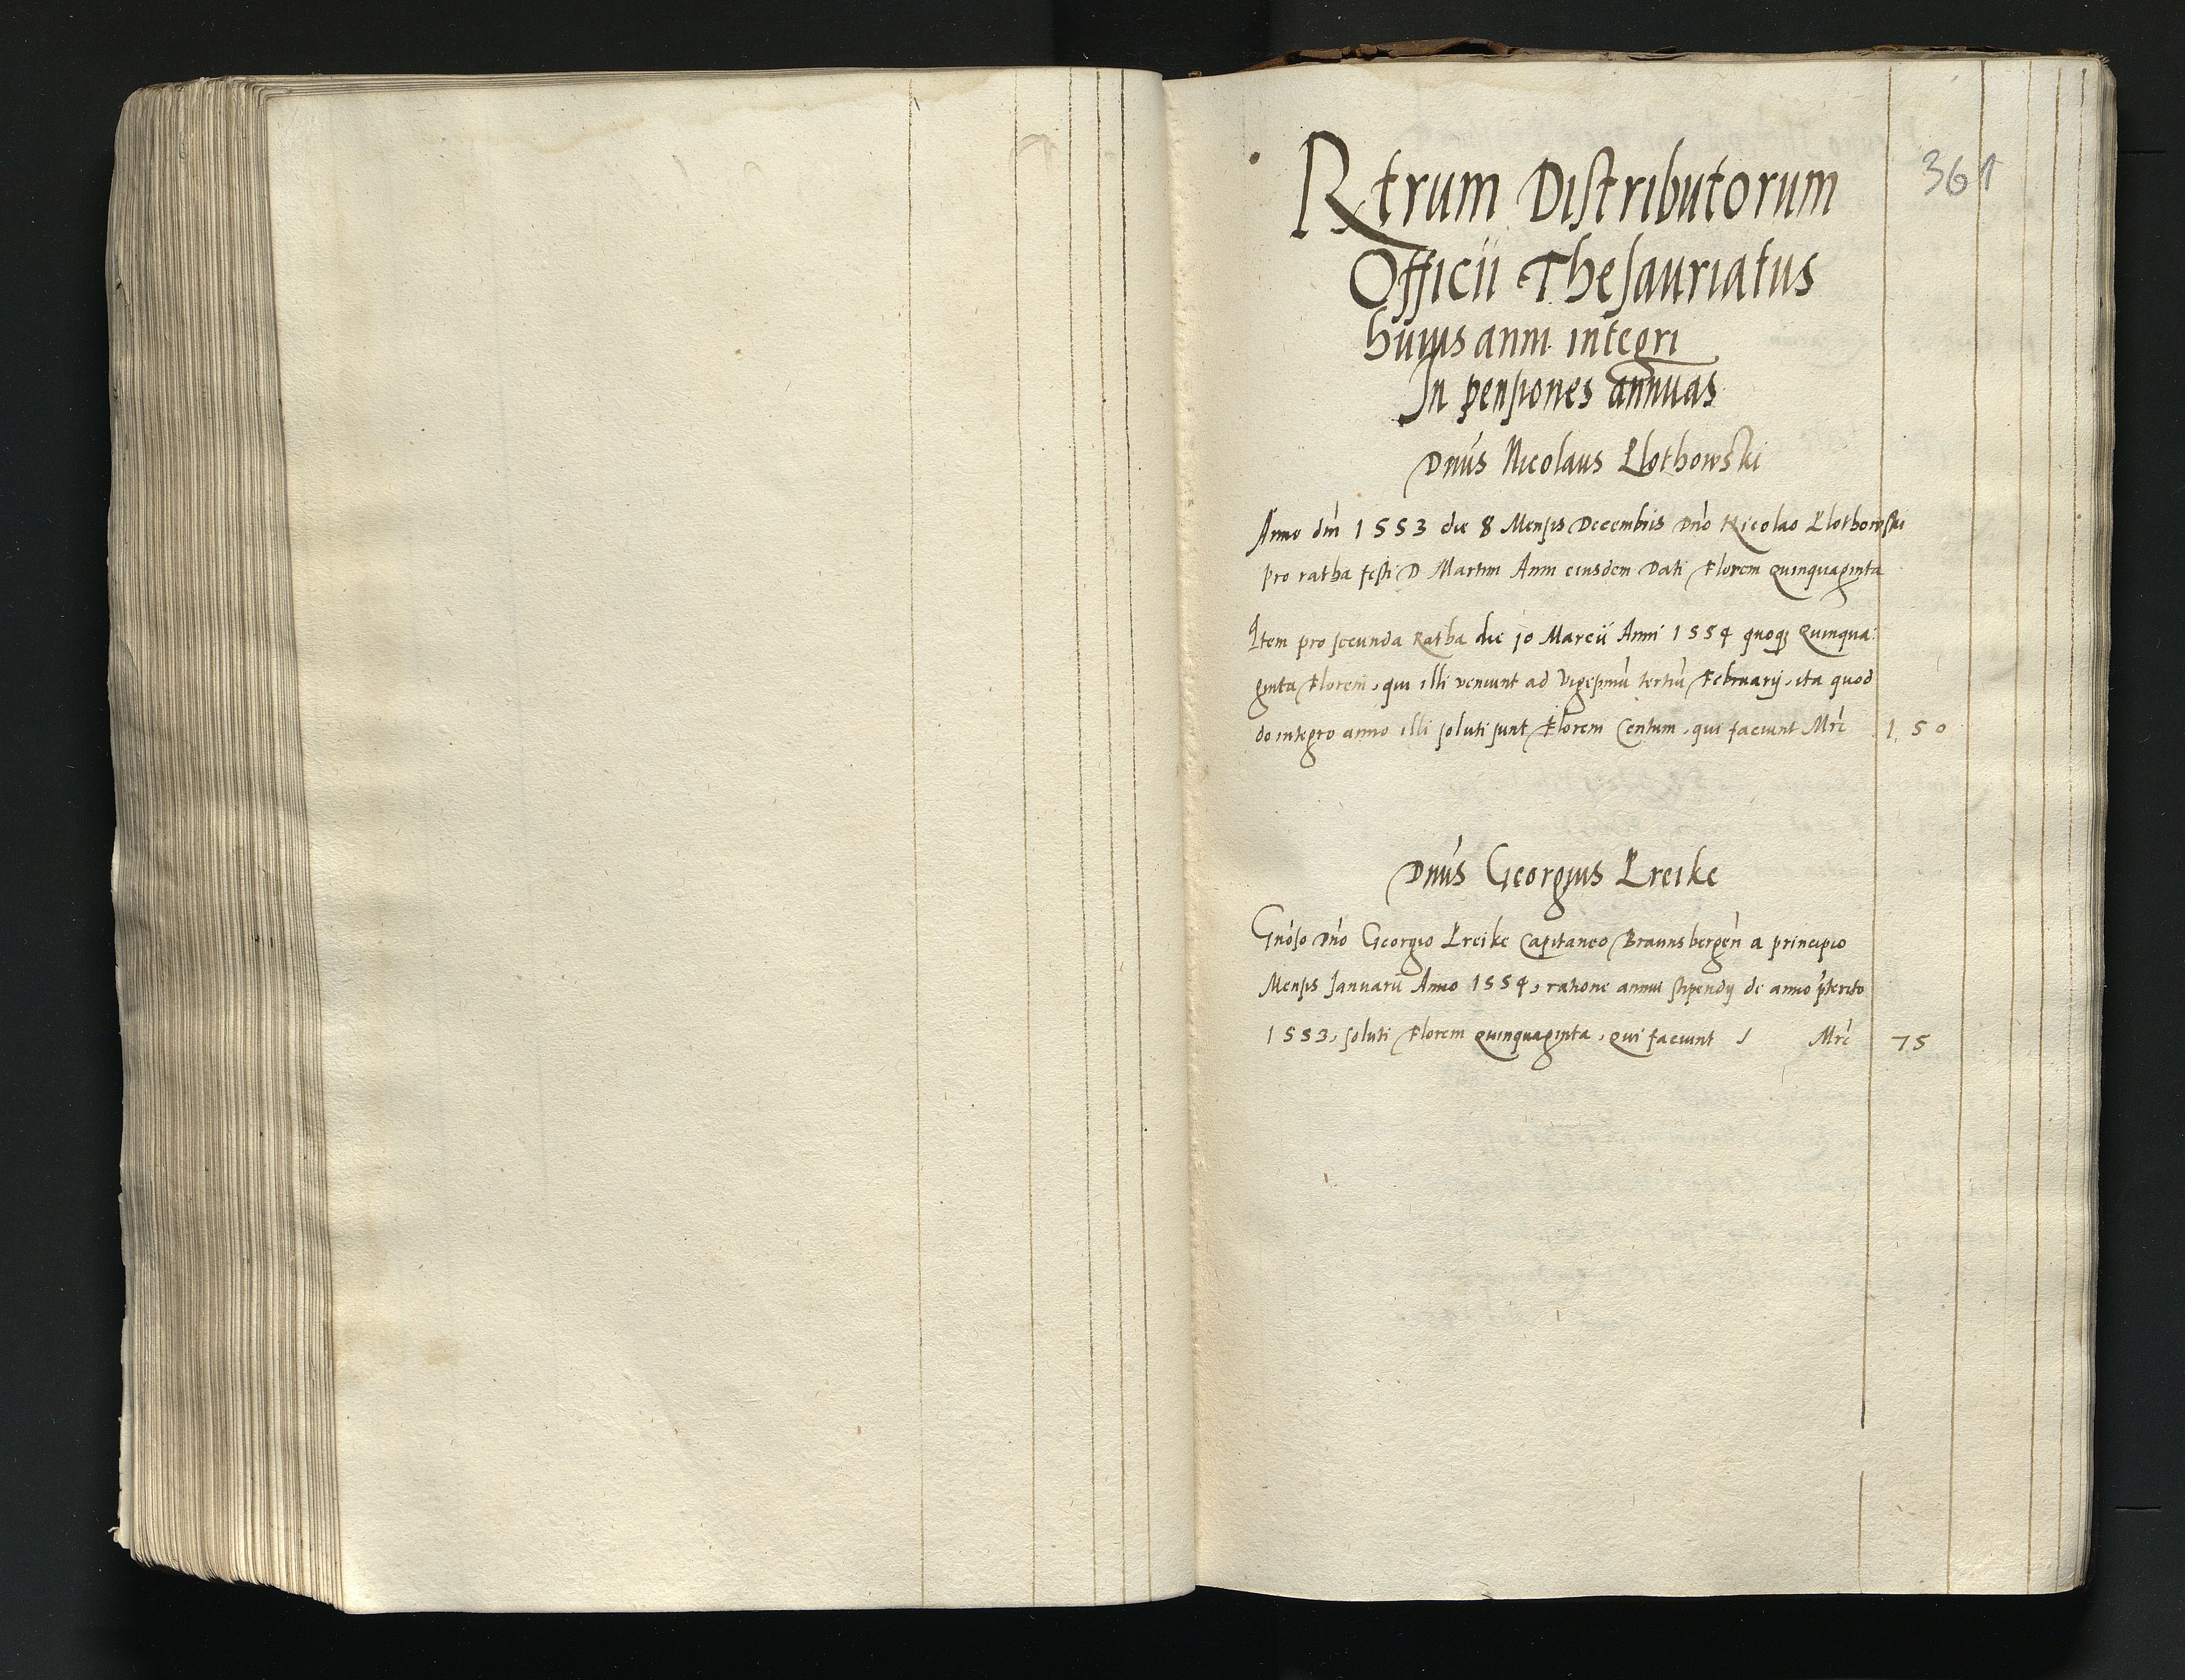 361
Rtrum Distributorum
Officii Thesauriatus
huius anni integri
In pensiones annuas
Dnus Nicolaus Plothowski
Anno dni 1553 die 8 Mensis Decembris Dno Nicolao Plothowski
pro ratha festi D Martini Anni eiusdem Dati Floren Quinquaginta
Item pro secunda Ratha die 10 Marcii Anni 1554 quoq Quinqua:
ginta Floren, qui illi veniunt ad Vigesimu tertiu Februarij, ita quod
de integro anno illi soluti sunt Floren Centum, qui faciunt Mrc 150
Dnus Georgius Preike
Gnoso Dno Georgio Preike Capitaneo Braunsbergen a principio
Mensis Januarii Anno 1554, ratione annui stipendij de anno pterito
1553, soluti Floren Quinquaginta, Qui faciunt / Mrc 75